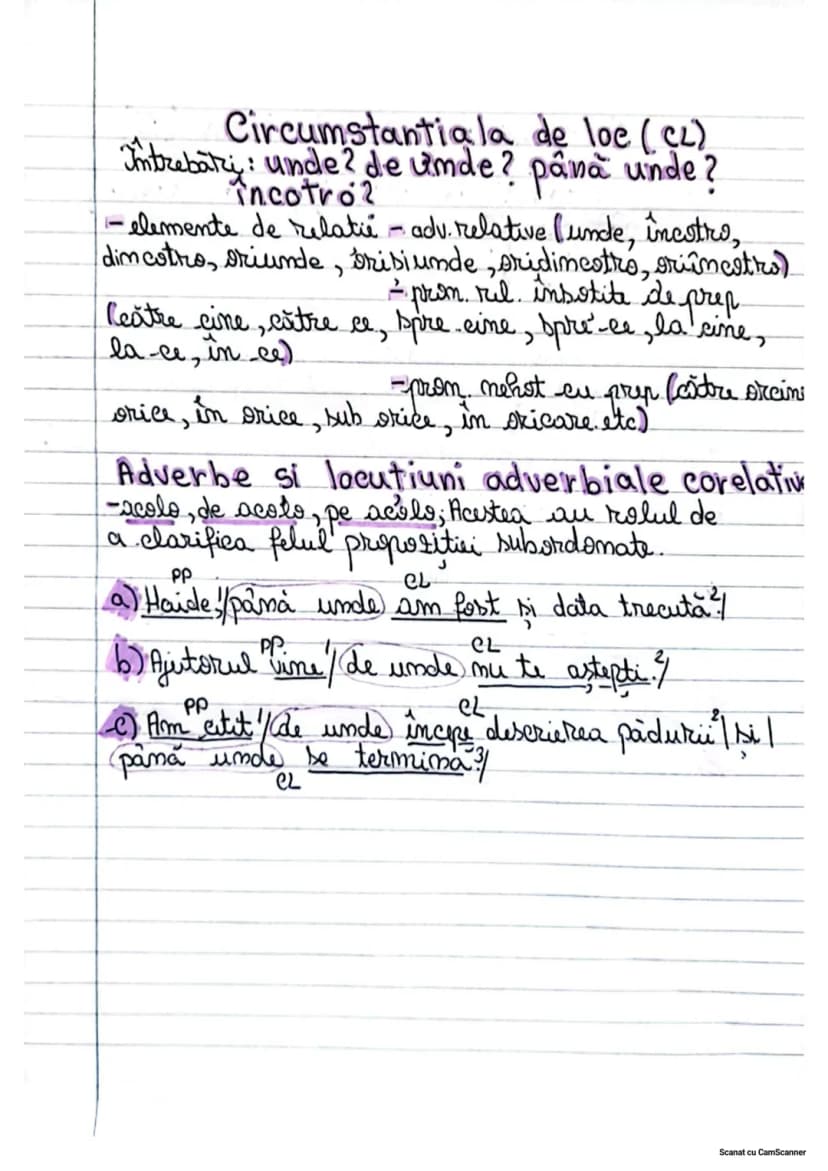 Circumstantiala de loc (CL)
Întrebări: unde? de unde? până unde?
încotro?
- elemente de relatii - adv. relative (unde, încotro,
dincotro, oriunde, orisiunde, oridincotro, oriîncotro)
- pron. rel. însotite de prep
(către cine, către ce, spre cine, spre ce, la cine,
la ce, în ce)
- pron. nehot cu prep (către oricine
orice, în orice, sub orice, în oricare. etc)
Adverbe si locutiuni adverbiale corelative
- acolo, de acolo, pe acolo; Acestea au rolul de
a clarifica felul propoziției subordonate.
PP CL
a) Haide1/ până unde am fost și data trecută.2/
PP CL
b) Ajutorul vine1/ de unde nu te aștepți.2/
PP CL
c) Am citit1/ de unde începe descrierea pădurii2/ și /
până unde se termina3/
CL
Scanat cu CamScanner